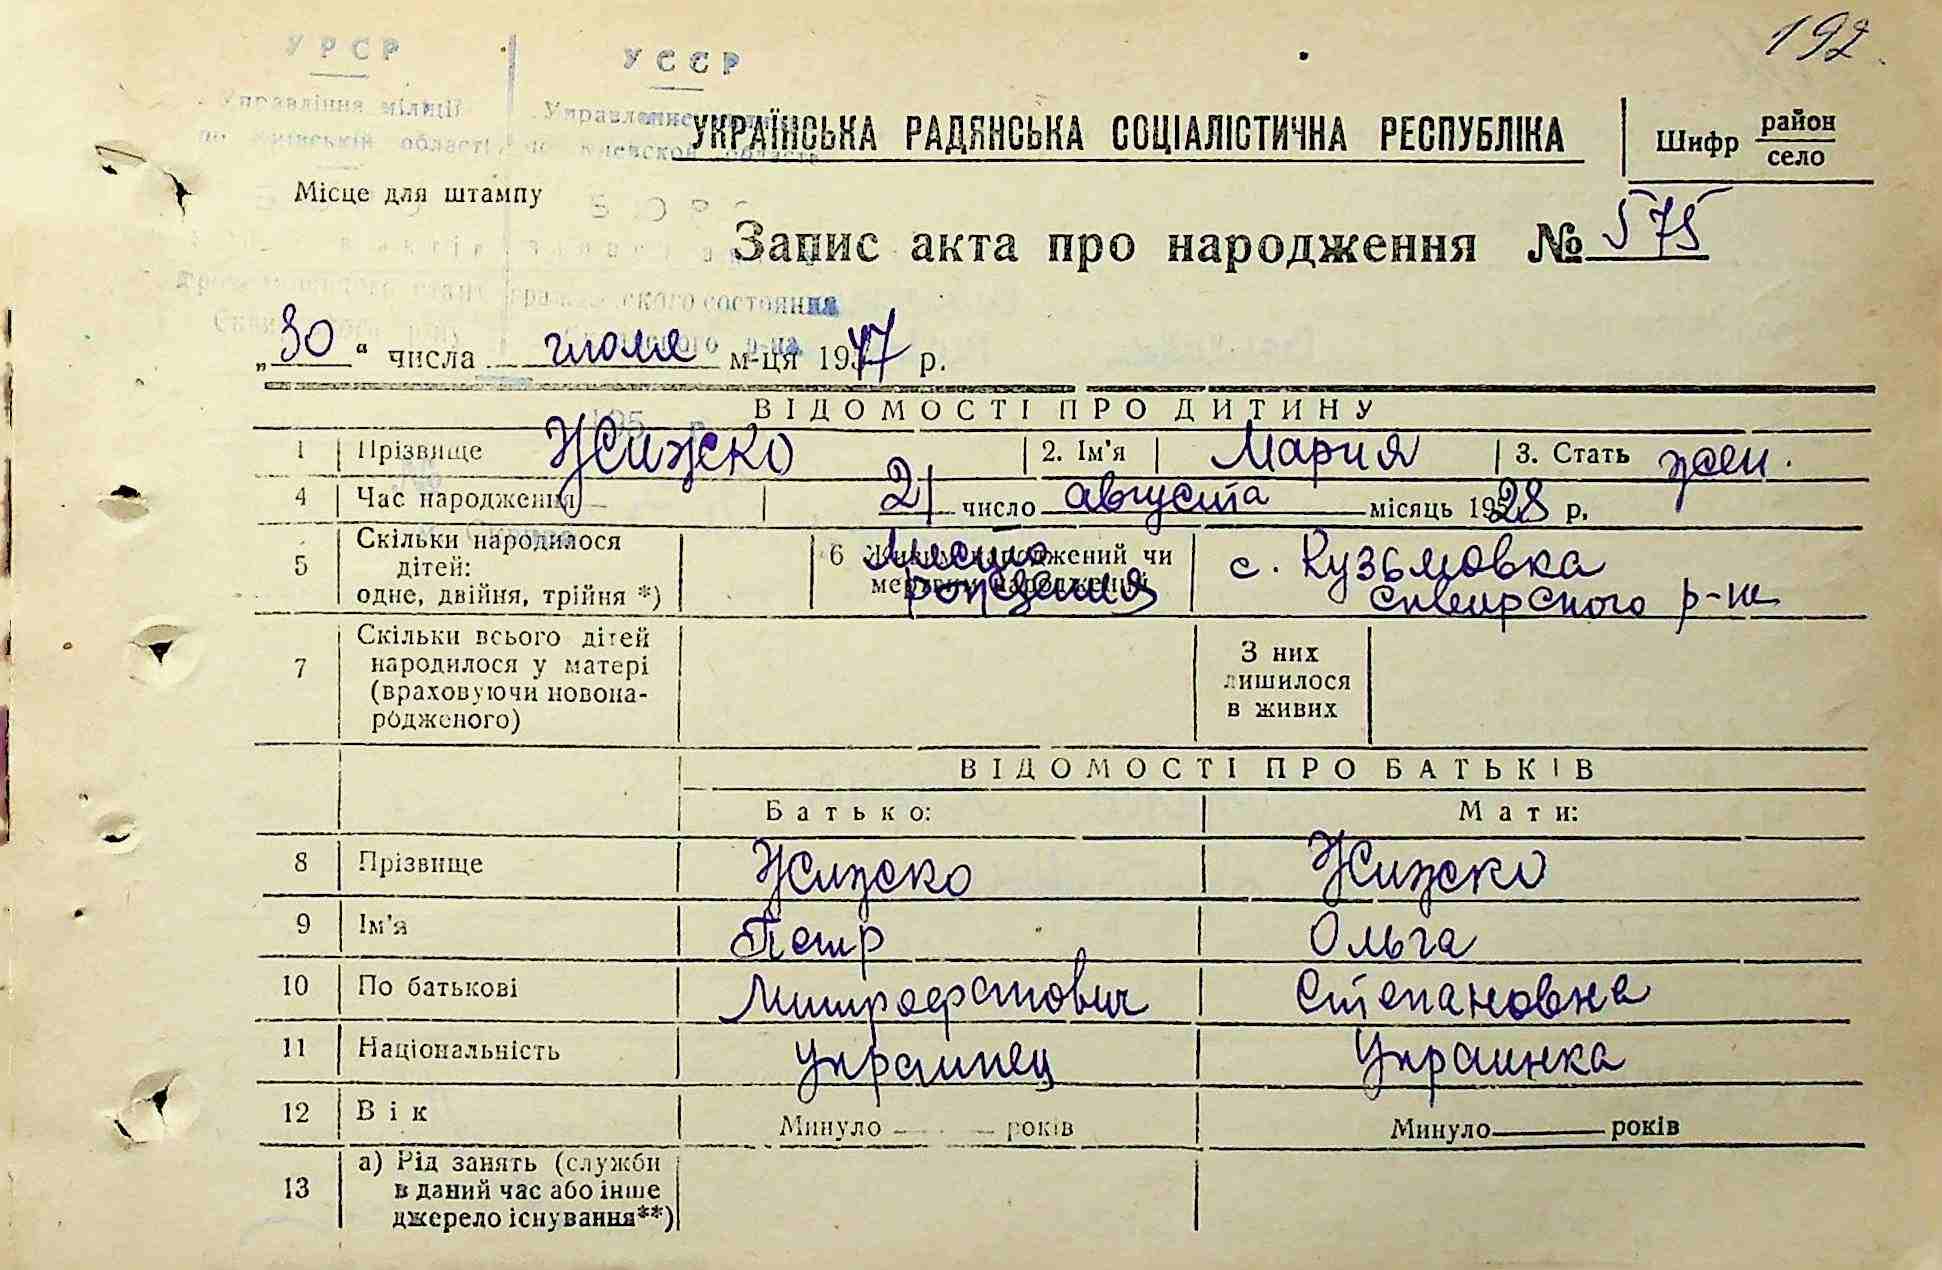 192.
УРСР УССР
Управління міліції Управление
по Київській області по Киевской области
УКРАЇНСЬКА РАДЯНСЬКА СОЦІАЛІСТИЧНА РЕСПУБЛІКА
Шифр район село
Місце для штампу
Запис акта про народження № 575
гражданского состояния
р-на
„30“ числа июля м-ця 1947 р.
ВІДОМОСТІ ПРО ДИТИНУ
1 Прізвище Жижско 2. Ім'я Мария 3. Стать жен.
4 Час народження 21 число августа місяць 1928 р.
5 Скільки народилося дітей: одне, двійня, трійня *) 6 Живим народжений чи мертвим народжений Место рождения с. Кузьмовка Сквирского р-на
7 Скільки всього дітей народилося у матері (враховуючи новонародженого) З них лишилося в живих
ВІДОМОСТІ ПРО БАТЬКІВ
Батько: Мати:
8 Прізвище Жижско Жижско
9 Ім'я Петр Ольга
10 По батькові Митрофанович Степановна
11 Національність Украинец Украинка
12 Вік Минуло років Минуло років
13 а) Рід занять (служби в даний час або інше джерело існування**)